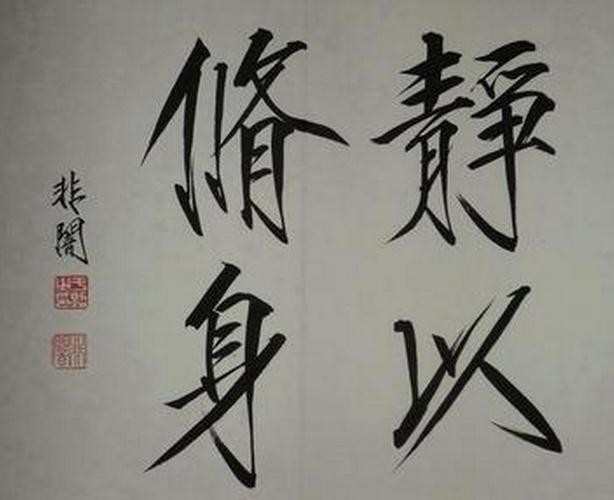 靜以
脩身
非闇